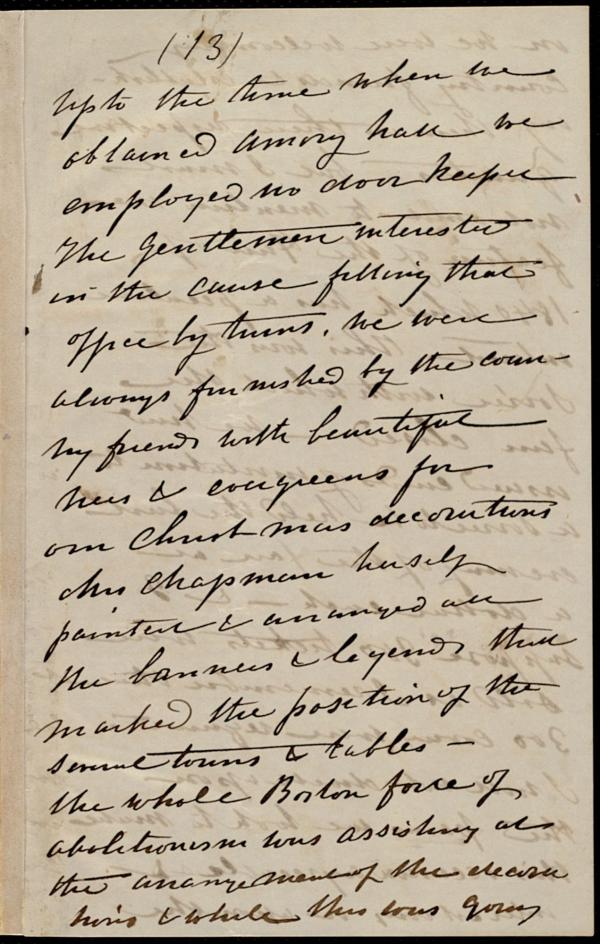 (13)
Up to the time when we
obtained Amory hall we
employed no door keeper
The Gentlemen interested
in the cause filling that
office by turns. We were
always furnished by the coun-
try friends with beautiful
trees & evergreens for
our Christmas decorations
Mrs Chapman herself
painted & arranged all
the banners & legends that
marked the position of the
several towns & tables —
the whole Boston force of
abolitionism was assisting at
the arrangement of the decora
tions & while this was going